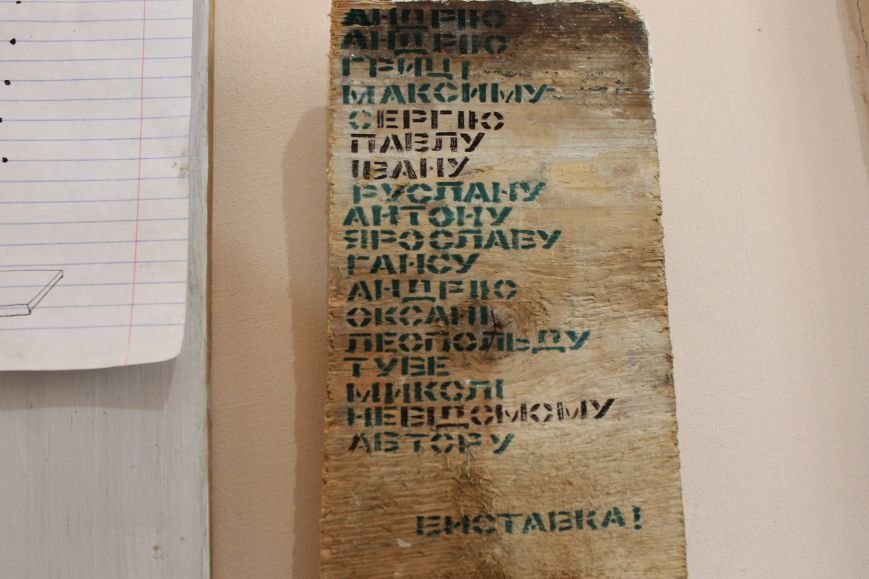 АНДРІЮ
АНДРІЮ
ГРИЦІ
МАКСИМУ
СЕРГІЮ
ПАВЛУ
ІВАНУ
РУСЛАНУ
АНТОНУ
ЯРОСЛАВУ
ГАНСУ
АНДРІЮ
ОКСАНІ
ЛЕОПОЛЬДУ
ТУБЕ
МИКОЛІ
НЕВІДОМОМУ
АВТОРУ
ВИСТАВКА!